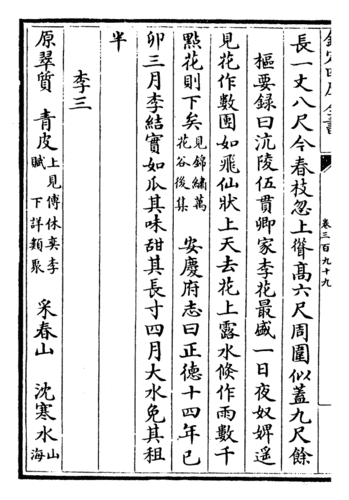 欽定四庫全書
卷三百九十九
長一丈八尺今春枝忽上聳高六尺周圍似蓋九尺餘
樞要録曰沅陵伍貫卿家李花最盛一日夜奴婢遥
見花作數團如飛仙狀上天去花上露水倐作雨數千
㸃花則下矣見錦繡萬花谷後集 安慶府志曰正徳十四年已
卯三月李結實如瓜其味甜其長寸四月大水免其租
半
李三
原翠質 青皮上見傅休奕李賦下詳類聚 采春山 沈寒水山海